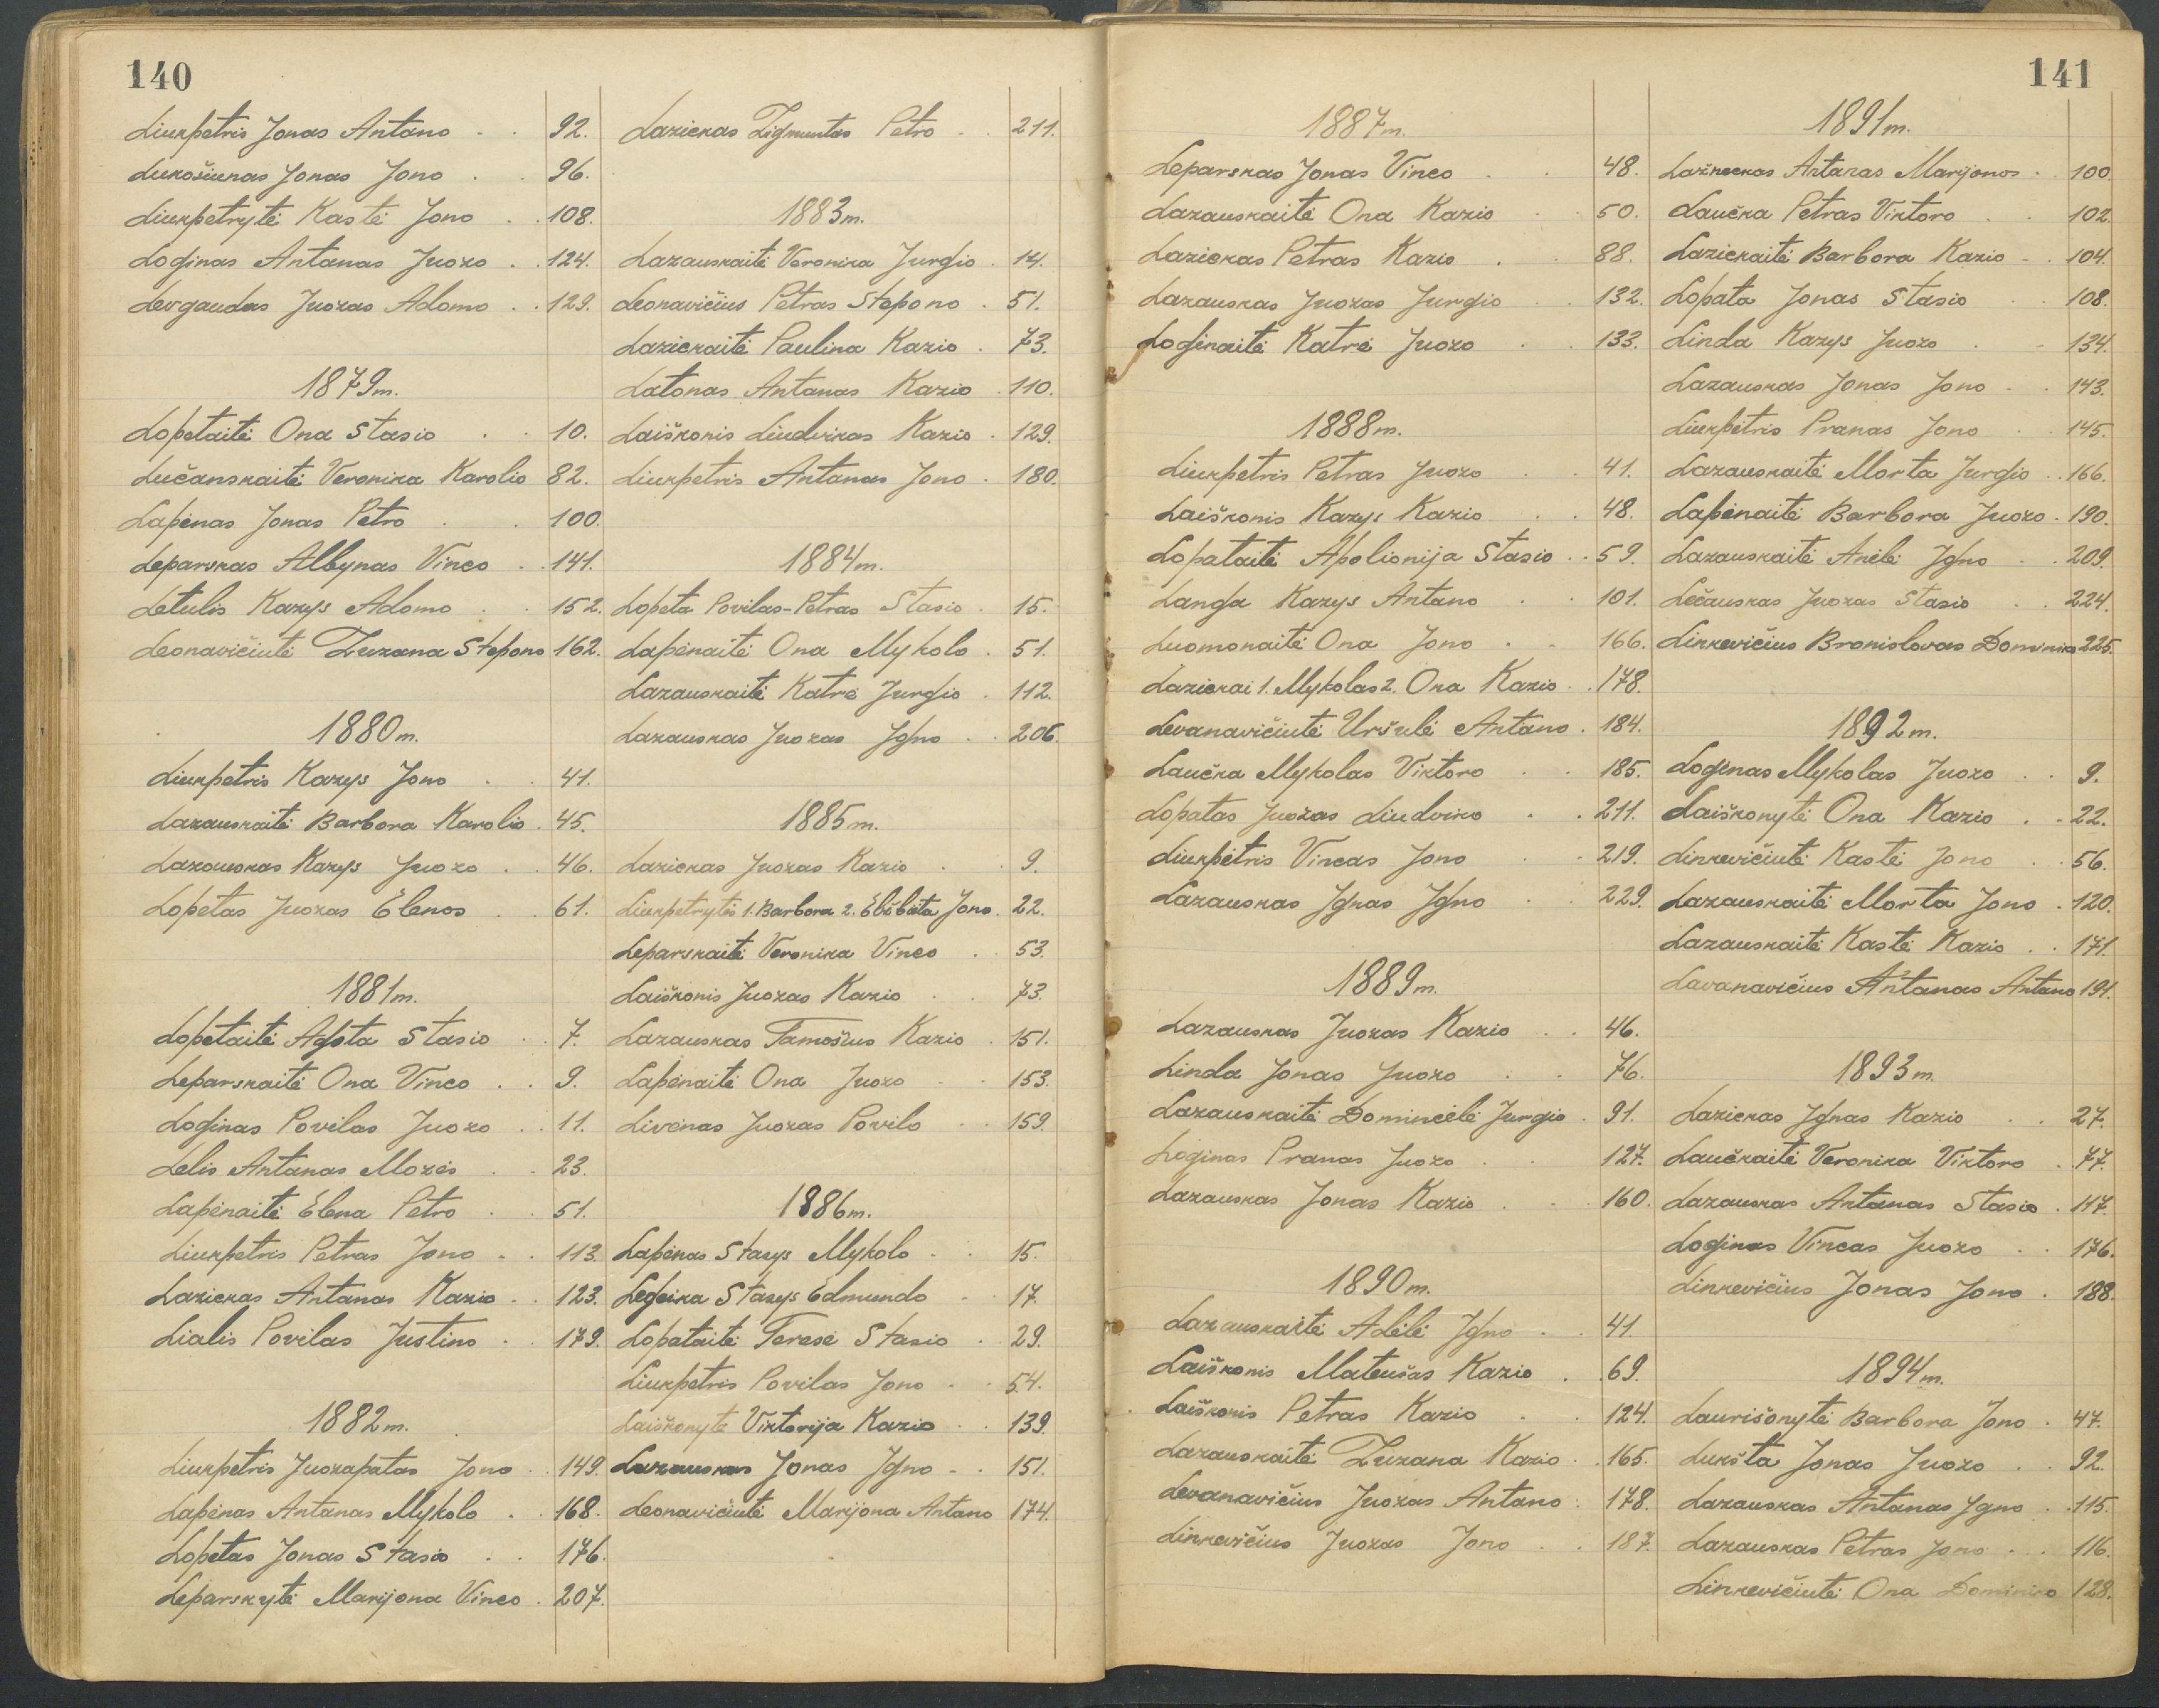 140
Liukpetris Jonas Antano 92.
Lukošiunas Jonas Jono 96.
Liukpetrytė Kastė Jono 108.
Loginas Antanas Juozo 124.
Levgaudas Juozas Adomo 129.
1879 m.
Lopetaitė Ona Stasio 10.
Lučanskaitė Veronika Karolio 82.
Lapėnas Jonas Petro 100.
Leparskas Albynas Vinco 141.
Letulis Kazys Adomo 152.
Leonavičiutė Zuzana Stepono 162.
1880 m.
Liukpetris Kazys Jono 41.
Lazauskaitė Barbora Karolio 45.
Lazauskas Kazys Juozo 46.
Lopetas Juozas Elenos 61.
1881 m.
Lopetaitė Agota Stasio 7.
Leparskaitė Ona Vinco 9.
Loginas Povilas Juozo 11.
Lelis Antanas Mozės 23.
Lapėnaitė Elena Petro 51.
Liukpetris Petras Jono 113.
Lazickas Antanas Kazio 123.
Lialis Povilas Justino 179.
1882 m.
Liukpetris Juozapatas Jono 149.
Lapėnas Antanas Mykolo 168.
Lopetas Jonas Stasio 176.
Leparskytė Marijona Vinco 207.
Lazickas Zigmuntas Petro 211.
1883 m.
Lazauskaitė Veronika Jurgio 14.
Leonavičius Petras Stepono 51.
Lazickaitė Paulina Kazio 73.
Latonas Antanas Kazio 110.
Laiškonis Liudvikas Kazio 129.
Liukpetris Antanas Jono 180.
1884 m.
Lopeta Povilas-Petras Stasio 15.
Lapėnaitė Ona Mykolo 51.
Lazauskaitė Katrė Jurgio 112.
Lazauskas Juozas Igno 206.
1885 m.
Lazickas Juozas Kazio 9.
Liukpetrytės 1. Barbora 2. Elžbieta Jono 22.
Leparskaitė Veronika Vinco 53.
Laiškonis Juozas Kazio 73.
Lazauskas Tamošius Kazio 151.
Lapėnaitė Ona Juozo 153.
Livėnas Juozas Povilo 159.
1886 m.
Lapėnas Stasys Mykolo 15.
Legeika Stasys Edmundo 17.
Lopataitė Teresė Stasio 29.
Liukpetris Povilas Jono 54.
Laiškonytė Viktorija Kazio 139.
Lazauskas Jonas Igno 151.
Leonavičiutė Marijona Antano 174.
141
1887 m.
Leparskas Jonas Vinco 48.
Lazauskaitė Ona Kazio 50.
Lazickas Petras Kazio 88.
Lazauskas Juozas Jurgio 132.
Loginaitė Katrė Juozo 133.
1888 m.
Liukpetris Petras Juozo 41.
Laiškonis Kazys Kazio 48.
Lopataitė Apolionija Stasio 59.
Langa Kazys Antano 101.
Luomonaitė Ona Jono 166.
Lazickai 1. Mykolas 2. Ona Kazio 178.
Levanavičiutė Uršulė Antano 184.
Laučka Mykolas Viktoro 185.
Lopatas Juozas Liudviko 211.
Liukpėtris Vincas Jono 219.
Lazauskas Ignas Igno 229.
1889 m.
Lazauskas Juozas Kazio 46.
Linda Jonas Juozo 76.
Lazauskaitė Domincėlė Jurgio 91.
Loginas Pranas Juozo 127.
Lazauskas Jonas Kazio 160.
1890 m.
Lazauskaitė Adėlė Igno 41.
Laiškonis Mateušas Kazio 69.
Laiškonis Petras Kazio 124.
Lazauskaitė Zuzana Kazio 165.
Levanavičius Juozas Antano 178.
Linkevičius Juozas Jono 187.
1891 m.
Antanas Marijonos 100.
Laučka Petras Viktoro 102.
Lazickaitė Barbora Kazio 104.
Lopata Jonas Stasio 108.
Linda Kazys Juozo 134.
Lazauskas Jonas Jono 143.
Liukpetris Pranas Jono 145.
Lazauskaitė Morta Jurgio 166.
Lapėnaitė Barbora Juozo 190.
Lazauskaitė Anėlė Igno 209.
Lečauskas Juozas Stasio 224.
Linkevičius Bronislovas Dominiko 225.
1892 m.
Loginas Mykolas Juozo 9.
Laiškonytė Ona Kazio 22.
Linkevičiutė Kastė Jono 56.
Lazauskaitė Morta Jono 120.
Lazauskaitė Kastė Kazio 171.
Lavanavičius Antanas Antano 191.
1893 m.
Lazickas Ignas Kazio 27.
Laučkaitė Veronika Viktoro 77.
Lazauskas Antanas Stasio 117.
Loginas Vincas Juozo 176.
Linkevičius Jonas Jono 188.
1894 m.
Laurišonytė Barbora Jono 47.
Lukšta Jonas Juozo 92.
Lazauskas Antanas Igno 115.
Lazauskas Petras Jono 116.
Linkevičiutė Ona Dominiko 128.